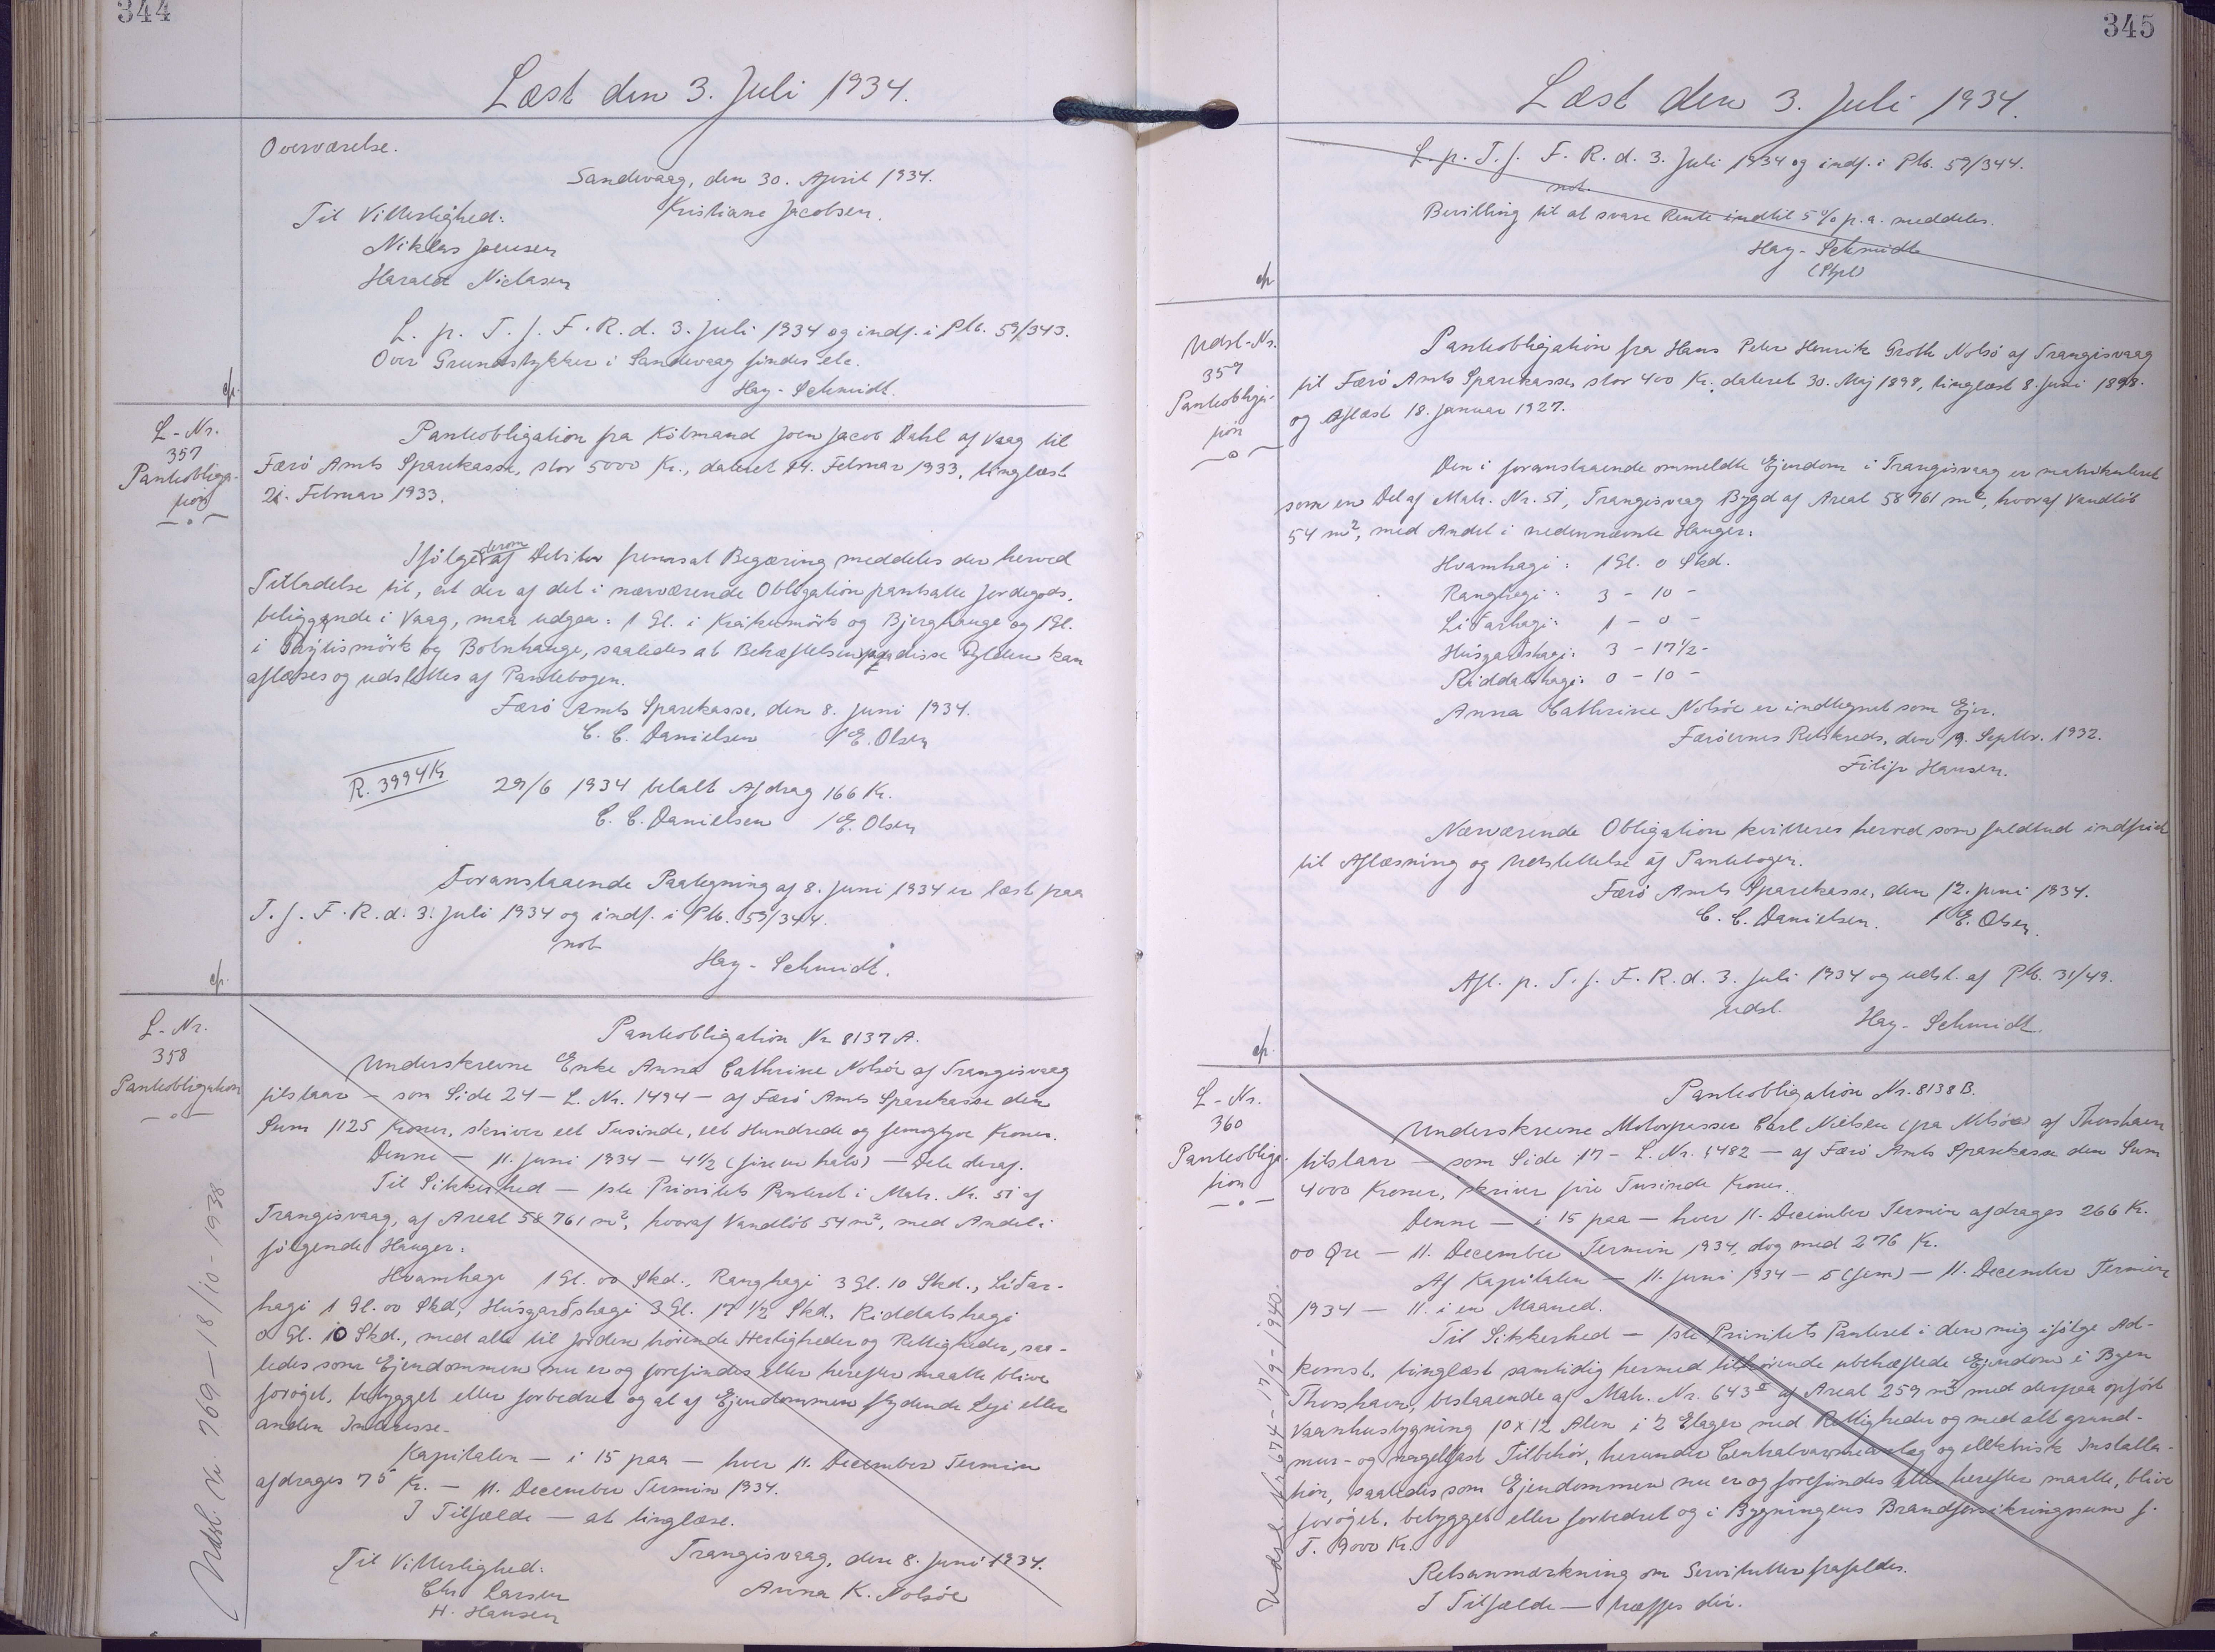 344
Læst den 3. Juli 1934.
Overværelse.
Sandevaag, den 30. April 1934.
Til Vitterlighed:
Kristiane Jacobsen.
Niklas Joensen
Harald Niclasen
L. p. T. f. F. R. d. 3. Juli 1934 og indf. i Ptb. 59/343.
Over Grundstykker i Sandevaag findes etc.
Hay-Schmidt.
cfr.
L-Nr.
357
Panteobliga-
tion
Panteobligation fra Köbmand Joen Jacob Dahl af Vaag til
Færö Amts Sparekasse, stor 5000 Kr., dateret 14. Februar 1933, tinglæst
21. Februar 1933.
Ifölge derom af Debitor fremsat Begæring meddeles der herved
Tilladelse til, at der af det i nærværende Obligation pantsatte Jordegods,
beliggende i Vaag, maa udgaa: 1 Gl. i Krákumörk og Bjerghauge og 1 Gl.
i Botnhauge, saaledes at Behæftelsen paa disse Gylden kan
aflæses og udslettes af Pantebogen.
Færö Amts Sparekasse, den 8. Juni 1934.
C. C. Danielsen / E. Olsen
R. 3994 K
29/6 1934 betalt Afdrag 166 Kr.
C. C. Danielsen / E. Olsen
Foranstaaende Paategning af 8. Juni 1934 er læst paa
T. f. F. R. d. 3. Juli 1934 og indf. i Ptb. 59/344.
not
Hay-Schmidt.
cfr.
L-Nr.
358
Panteobligation
Panteobligation Nr 8137 A.
Underskrevne Enke Anna Cathrine Nolsöe af Trangisvaag
tilstaar – som Side 24 – L. Nr. 1494 – af Færö Amts Sparekasse den
Sum 1125 Kroner, skriver eet Tusinde, eet Hundrede og femogtyve Kroner.
Denne – 11. Juni 1934 – 4½ (fire en halv) – Dele deraf.
Til Sikkerhed – 1ste Prioritets Panteret i Matr. Nr. 5i af
Trangisvaag, af Areal 58761 m², hvoraf Vandlöb 54 m², med Andel i
fölgende Hauger:
Hvamhagi 1 Gl. 00 Skd., Ranghagi 3 Gl. 10 Skd., Liðar-
hagi 1 Gl. 00 Skd, Húsgarðshagi 3 Gl. 17 ½ Skd, Riddalshagi
0 Gl. 10 Skd., med alle til Jorden hörende Herligheder og Rettigheder, saa-
ledes som Ejendommen nu er og forefindes eller herefter maatte blive
foröget, bebygget eller forbedret og al af Ejendommen flydende Leje eller
anden Interesse.
Kapitalen – i 15 paa – hver 11. December Termin
afdrages 75 Kr. – 11. December Termin 1934.
I Tilfælde – at tinglæse.
Til Vitterlighed:
Trangisvaag, den 8. Juni 1934.
Chr Larsen
Anna K. Nolsöe
H. Hansen
Udsl. Nr. 769 – 18/10 – 1938
345
Læst den 3. Juli 1934.
L. p. T. f. F. R. d. 3. Juli 1934 og indf. i Ptb. 59/344.
not.
Bevilling til at svare Rente indtil 5 % p.a. meddeles.
Hay-Schmidt
cfr
Udsl-Nr.
359
Panteobliga-
tion
Panteobligation fra Hans Peter Henrik Groth Nolsö af Trangisvaag
til Færö Amts Sparekasse, stor 400 Kr., dateret 30. Maj 1898, tinglæst 8. Juni 1898.
og Aflæst 18. Januar 1927.
Den i foranstaaende ommeldte Ejendom i Trangisvaag er matrikuleret
som en Del af Matr. Nr. 5i, Trangisvaag Bygd af Areal 58761 m², hvoraf Vandlöb
54 m², med Andel i nedennævnte Hauger:
Hvamhagi: 1 Gl. 0 Skd.
Ranghagi: 3 – 10 –
Liðarhagi: 1 – 0 –
Húsgarðshagi: 3 – 17½ –
Riddalshagi: 0 – 10 –
Anna Cathrine Nolsöe er indtegnet som Ejer.
Færöernes Retskreds, den 19. Septbr. 1932.
Filip Hansen.
Nærværende Obligation kvitteres herved som fuldtud indfriet
til Aflæsning og Udslettelse af Pantebogen.
Færö Amts Sparekasse, den 12. Juni 1934.
C. C. Danielsen. / E. Olsen.
Afl. p. T. f. F. R. d. 3. Juli 1934 og udsl. af Ptb. 31/49.
udsl.
Hay-Schmidt.
cfr.
L-Nr.
360
Panteobliga-
tion
Panteobligation Nr. 8138 B.
Underskrevne Motorpasser Carl Nielsen (fra Nolsöe) af Thorshavn
tilstaar – som Side 17 – L. Nr. 1482 – af Færö Amts Sparekasse den Sum
4000 Kroner, skriver fire Tusinde Kroner.
Denne – i 15 paa – hver 11. December Termin afdrages 266 Kr.
00 Øre – 11. December Termin 1934, dog med 276 Kr.
Af Kapitalen – 11. Juni 1934 – 5 (fem) – 11. December Termin
1934 – 11. i en Maaned.
Til Sikkerhed – 1ste Prioritets Panteret i den mig ifölge Ad-
komst, tinglæst samtidig hermed tilhörende ubehæftede Ejendom i Byen
Thorshavn, bestaaende af Matr. Nr. 643 af Areal 259 m² med derpaa opfört
Vaanhusbygning 10 x 12 Alen i 2 Etager med Rettigheder og med alt grund-
mur- og nagelfast Tilbehör, herunder Centralvarmeanlæg og elektrisk Installa-
tion, saaledes som Ejendommen nu er og forefindes eller herefter maatte, blive
foröget, bebygget eller forbedret og i Bygningens Brandforsikringssum f.
T. 9000 Kr.
Retsanmærkning om Servitutter frafaldes.
I Tilfælde – træffes der.
Udsl. Nr 674 – 17/9 – 1940.